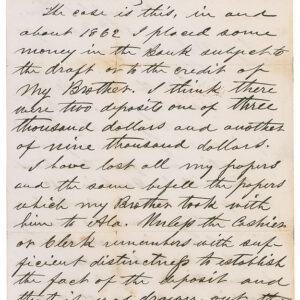 The case is this, in and
about 1862 I placed some
money in the Bank subject to
the draft or to the credit of
My Brother. I think there
were two deposits one of three
thousand dollars and another
of nine thousand dollars.
I have lost all my papers
and the same befell the papers
which my Brother took with
him to Ala. Unless the Cashier
or Clerk remembers with suf-
ficient distinctness to establish
the fact of the deposit and
that it was drawn out the